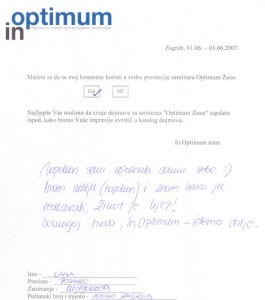 optimum
in
Zagreb, 01.06. - 03.06.2007.
Slažem sa da se moj komentar koristi u svrhu promocije seminara Optimum Zone.
DA NE
Najljepše Vas molimo da svoje dojmove sa seminara "Optimum Zone" zapišete
ispod, kako bismo Vaše impresije uvrstili u katalog dojmova.
In Optimum team
Napokon sam upoznala samu sebe :)
Imam viziju (napokon) i znam kako ju
realizirati. Život je lijep!
hvala, In Optimum - idemo dalje.
Ime - LANA
Prezime -
Zanimanje -
Poštanski broj i mjesto - 10000 ZAGREB